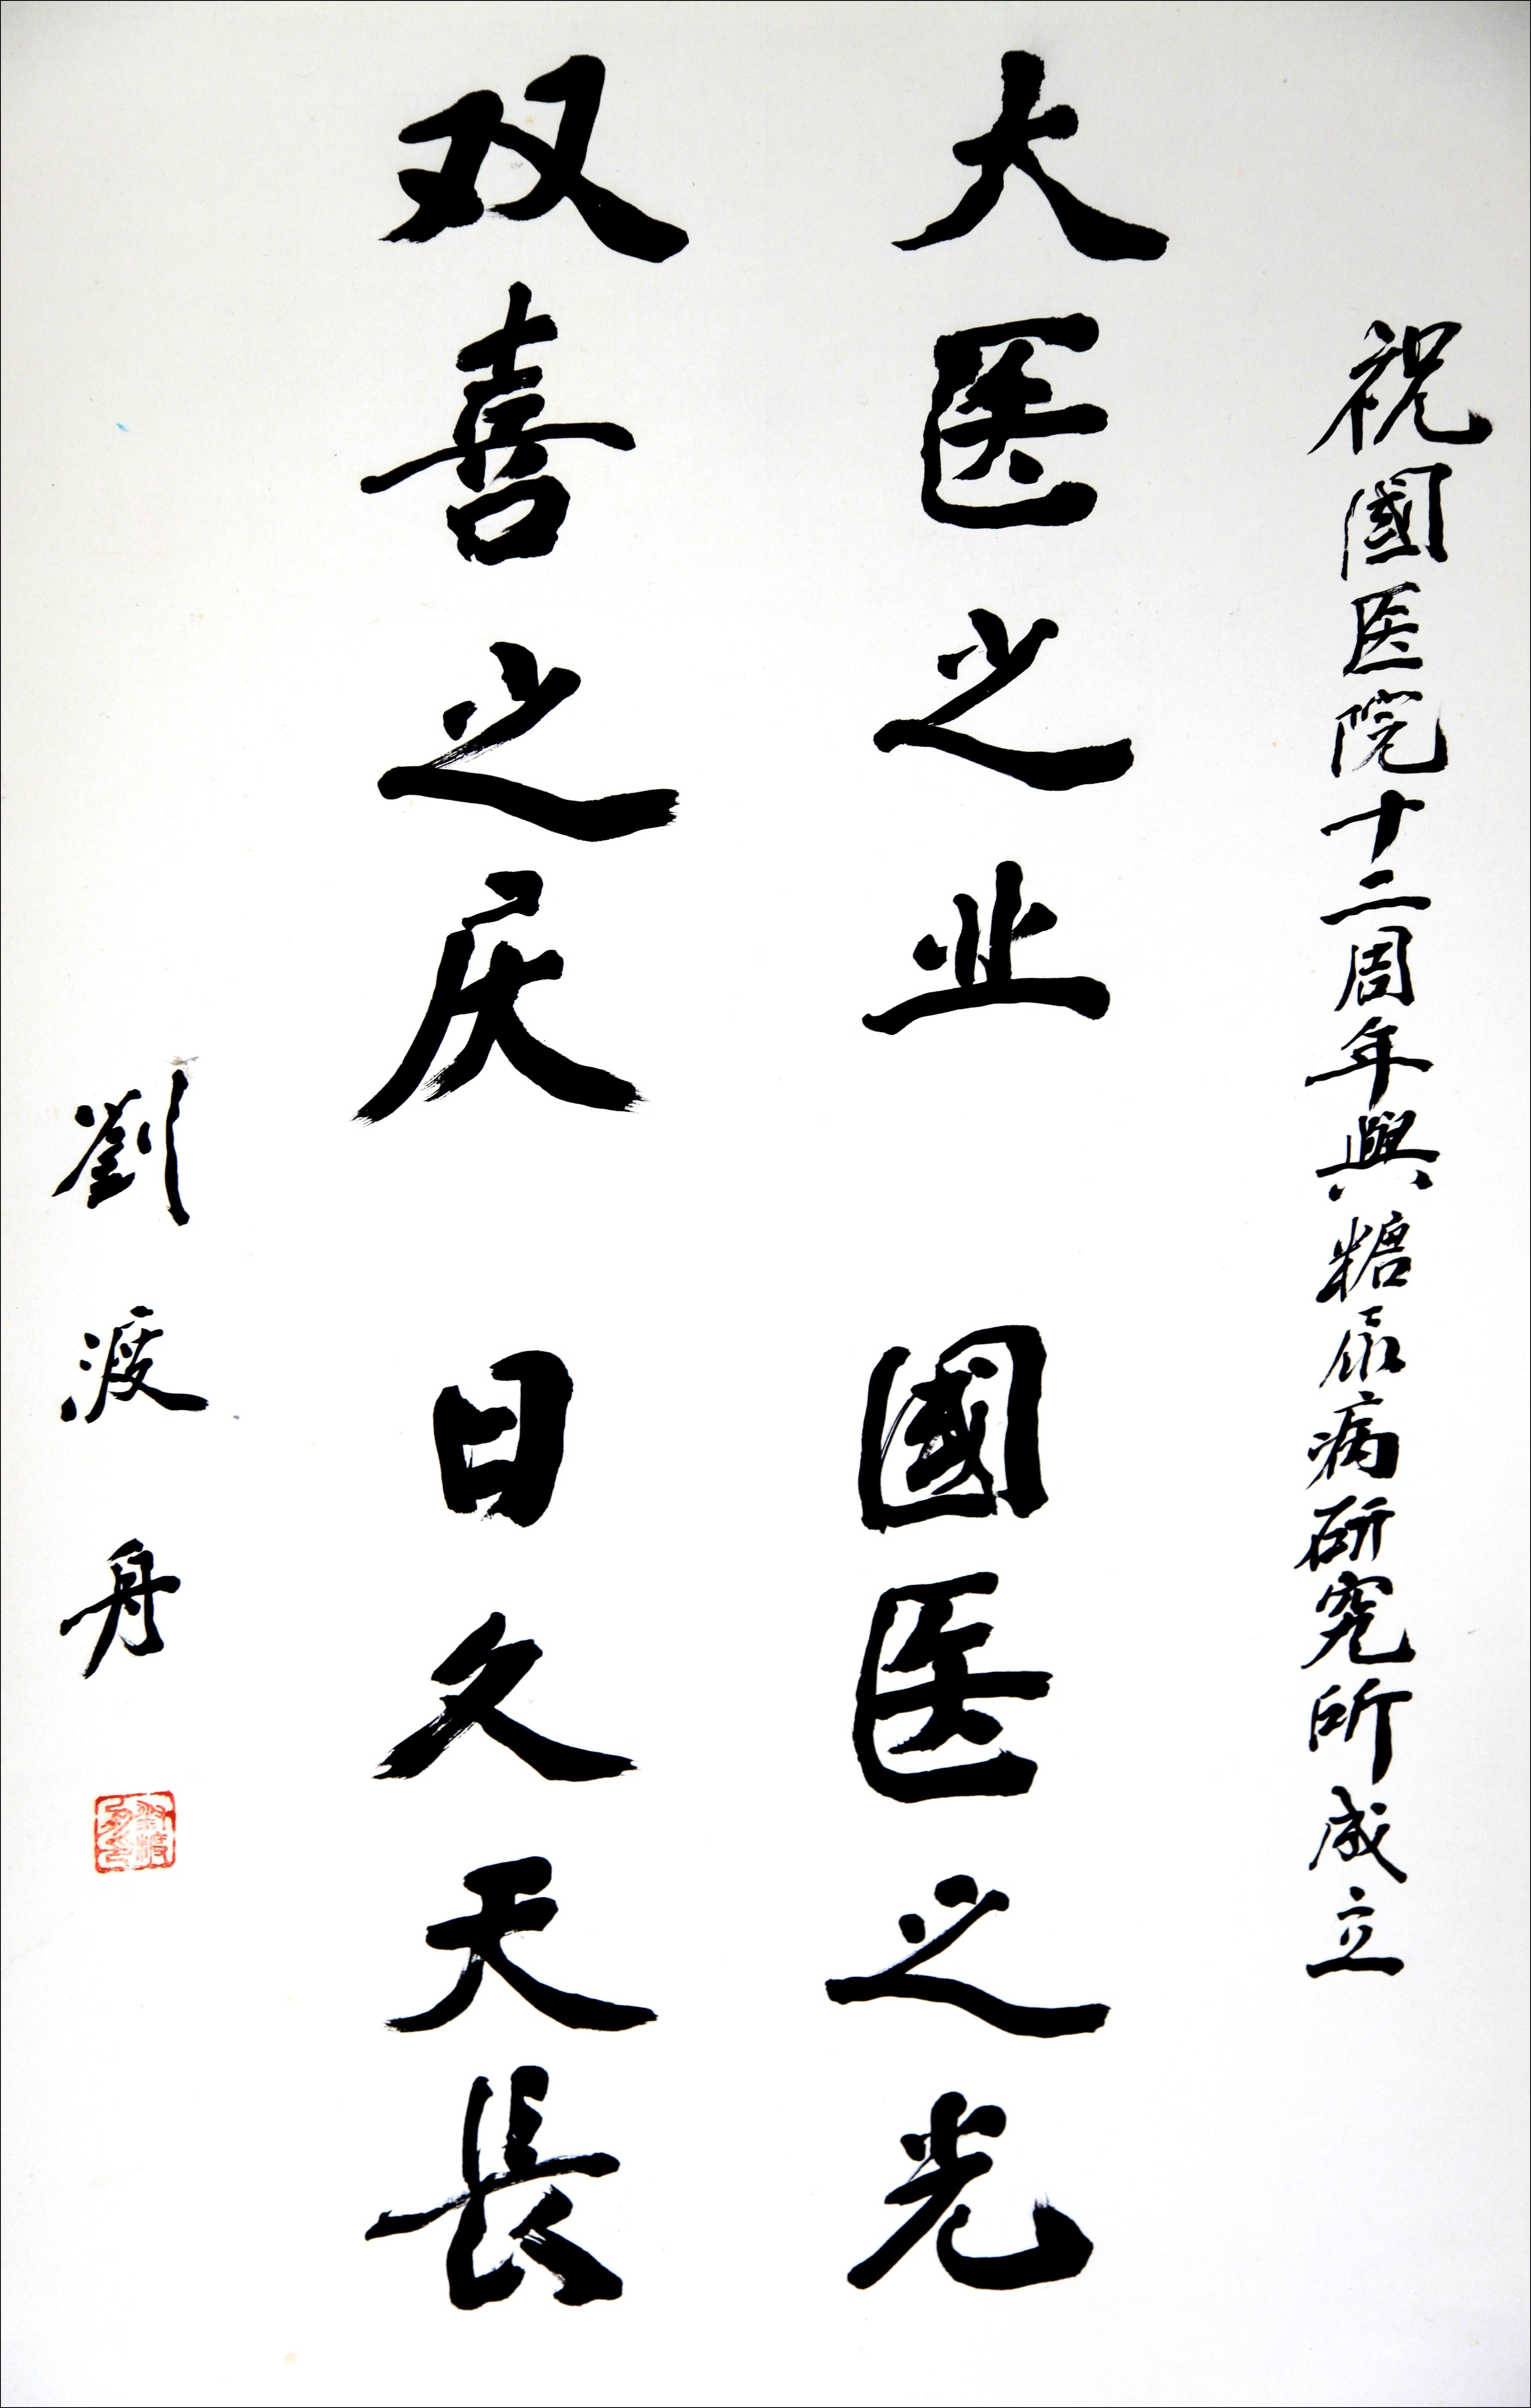 祝國医院十二周年與糖尿病研究所成立
大医之业 國医之光
双喜之庆 日久天長
劉渡舟